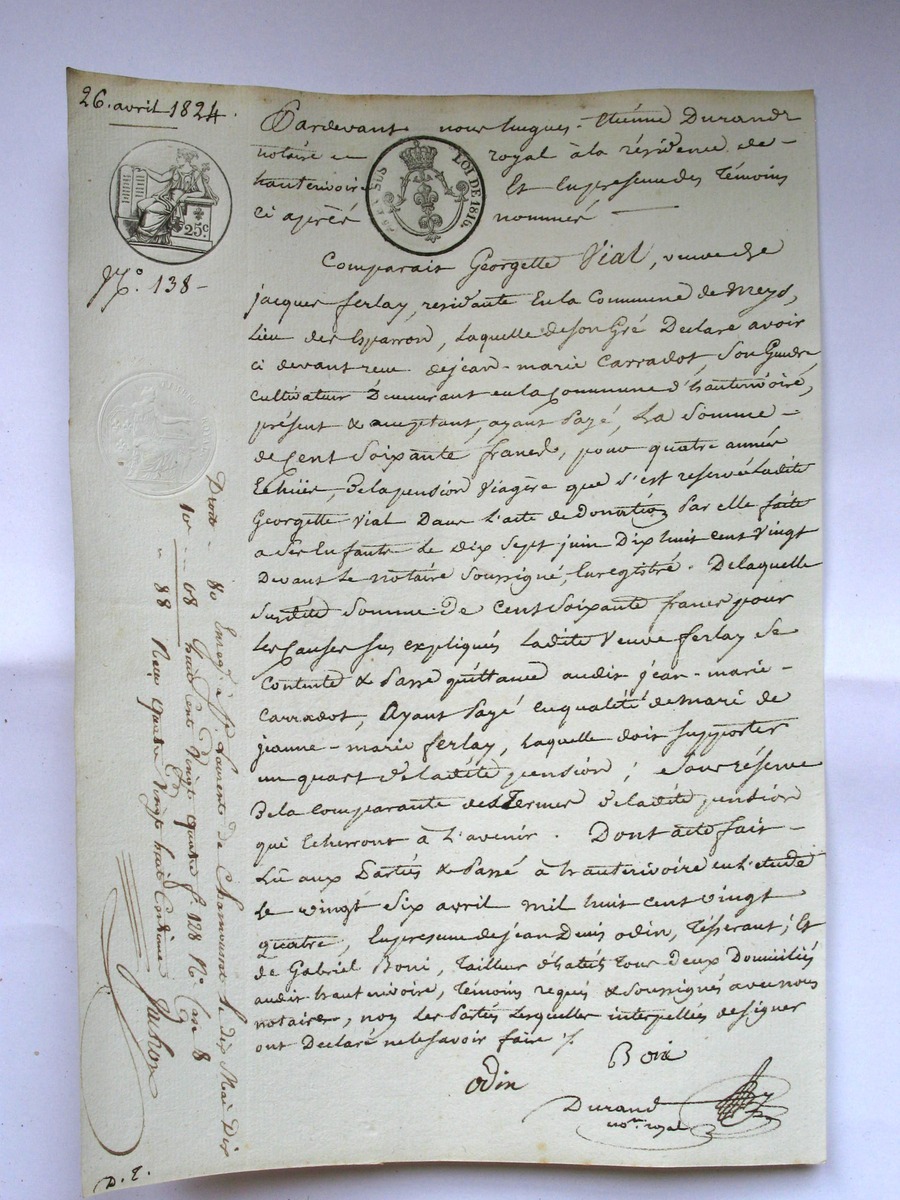 26. avril 1824.
Pardevant nous hugues-Etiénne Durand
notaire royal à la résidence de-
hauterivoire Et Enpresence des Témoins
ci après nommés
LOI DE 1816.
25c.
N.° 138-
Comparait Georgette Vial, veuve de
jacques ferlay, residante En la Commune de meys,
Lieu des Esparron, Laquelle de son Gré Declare avoir
ci devant reçu de jean-marie Carradot, Son Gendre
Cultivateur Demeurant en la Commune d'hauterivoire,
présent & acceptant, ayant Payé, La Somme-
de Cent Soixante francs, pour quatre année
Echües, de la pension Viagère que s'est reservée Ladite
Georgette Vial Dans L'acte de Donation Par elle faite
a Ses Enfants Le dix Sept juin Dix huit cent Vingt
Devant Le notaire Soussigné, Enregistré. De laquelle
Susdite Somme de Cent Soixante francs pour
Les Causes Sus expliqués Ladite Veuve ferlay Se
Contente & Passe quittance audit jean-marie-
Carradot, Ayant Payé en qualité de mari de
jeanne-marie ferlay, Laquelle doit Supporter
un quart de ladite pension; Sous réserve
de la Comparante des Termes de ladite pension
qui Echerront à L'avenir. Dont acte fait-
Lu aux Parties & Passé à hauterivoire en L'etude
Le vingt Six avril mil huit cent vingt
quatre, En presence de jean Denis odin, Tisserant; Et
de Gabriel Boni, Tailleur d'habits Tous Deux Domiciliés
audit hauterivoire, Témoins requis & Soussignés avec nous
notaire, non Les Parties Lesquelles interpellés de signer
ont Declaré ne le savoir faire
odin
Durand
not. royal
Droits - 80
10e - 08
" 88
Enreg. à St. Laurent de Chamousset le dix Mai Dix
huit Cent Vingt quatre f. 128 R. Case 8
Reçu quatre Vingt huit Centimes
D. E.